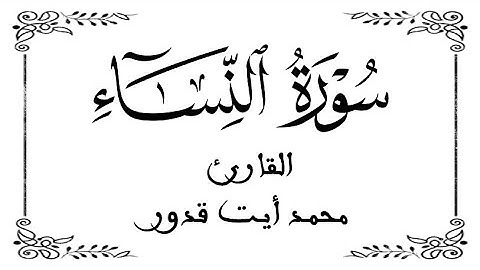 سُورَةُ ٱلنِّسَآءِ
القارئ
محمد أيت قدور